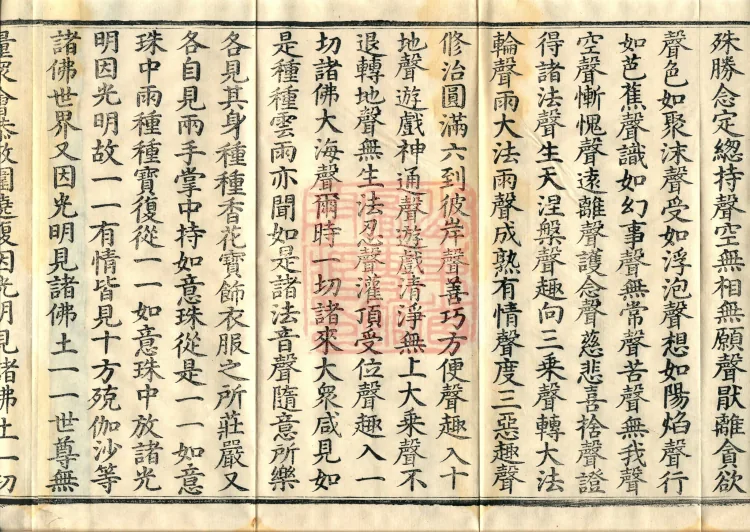 殊勝念定緫持聲空無相無願聲厭離貪欲
聲色如聚沫聲受如浮泡聲想如陽焰聲行
如芭蕉聲識如幻事聲無常聲苦聲無我聲
空聲慚愧聲遠離聲護念聲慈悲喜捨聲證
得諸法聲生天涅槃聲趣向三乘聲轉大法
輪聲雨大法雨聲成熟有情聲度三惡趣聲
修治圓滿六到彼岸聲善巧方便聲趣入十
地聲遊戲神通聲遊戲清淨無上大乘聲不
退轉地聲無生法忍聲灌頂受位聲趣入一
切諸佛大海聲爾時一切諸來大衆咸見如
是種種雲雨亦聞如是諸法音聲隨意所樂
各見其身種種香花寶飾衣服之所莊嚴又
各自見兩手掌中持如意珠從是一一如意
珠中雨種種寶復從一一如意珠中放諸光
明因光明故一一有情皆見十方殑伽沙等
諸佛世界又因光明見諸佛土一一世尊無
量眾會恭敬圍繞復因光明見諸佛土一切